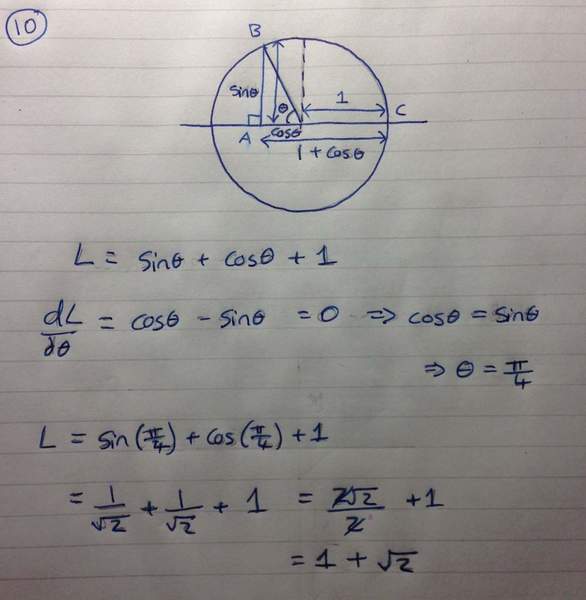 10
B
sinθ
θ
1
C
A
cosθ
1 + cosθ
L = sinθ + cosθ + 1
dL/dθ = cosθ - sinθ = 0 ⇒ cosθ = sinθ
⇒ θ = π/4
L = sin(π/4) + cos(π/4) + 1
= 1/√2 + 1/√2 + 1 = 2√2/2 + 1
= 1 + √2